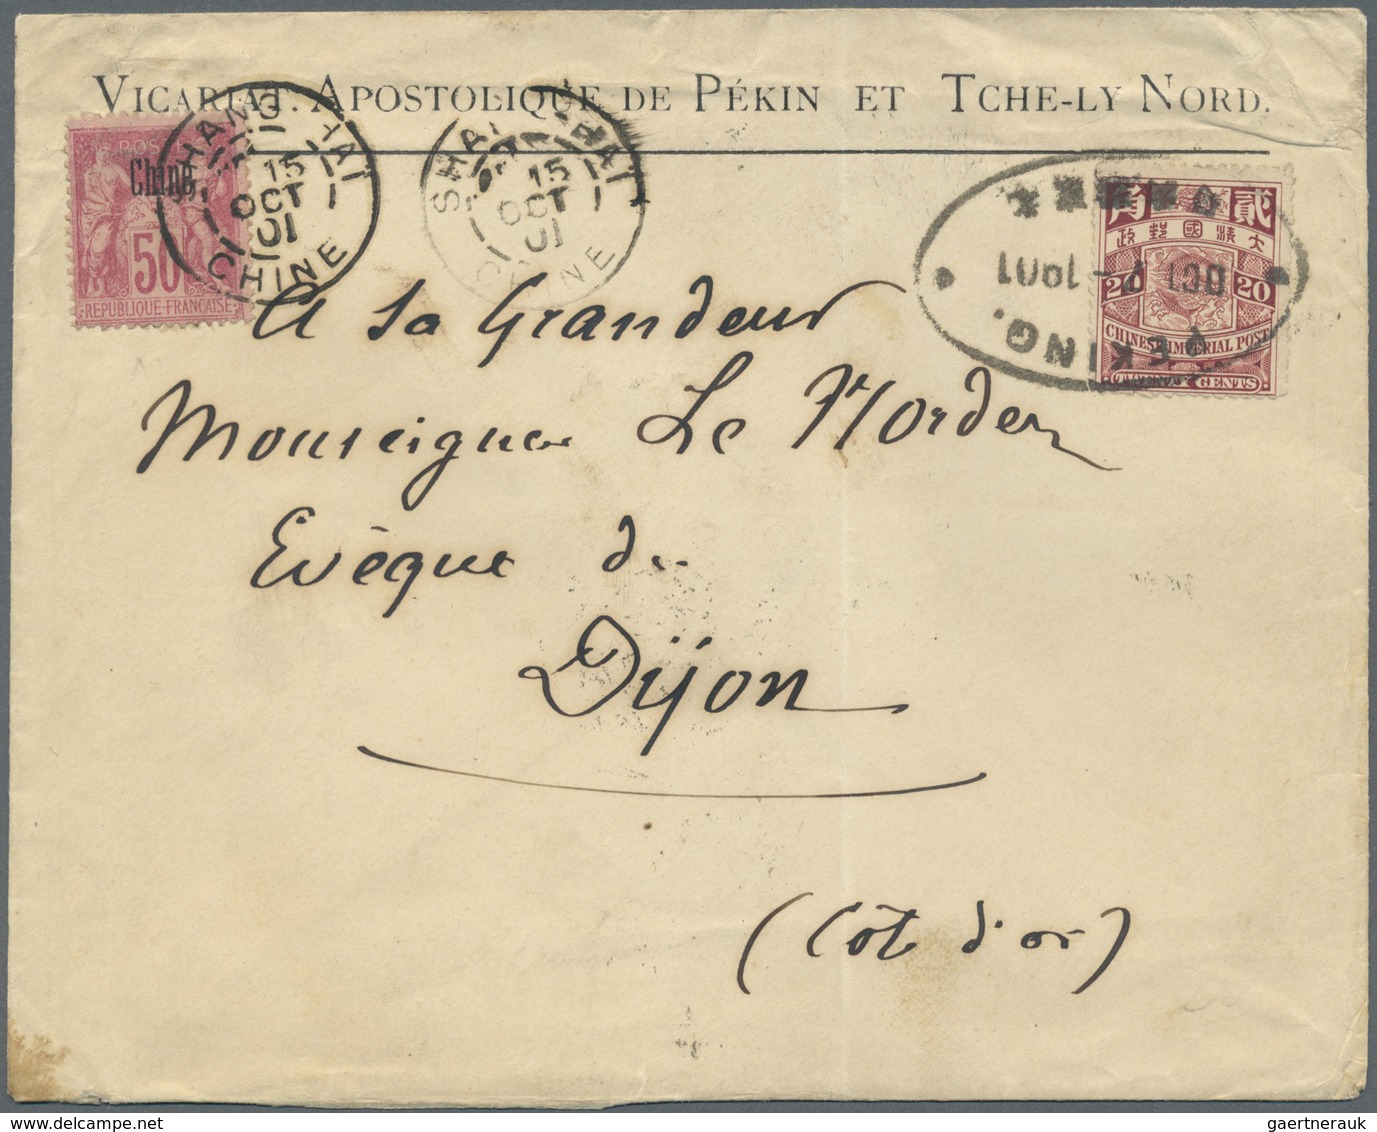 VICARIAT APOSTOLIQUE DE PÉKIN ET TCHE-LY NORD.
POS
Chine
50
RÉPUBLIQUE-FRANÇAISE
SHANG-HAI
15
OCT
01
CHINE
SHANG-HAI
15
OCT
01
CHINE
PEKING.
OCT 7 – 1901
貳 角
大清國郵政
20 20
CHINESE IMPERIAL POST
CENTS
A Sa Grandeur
Monseigneur Le Nordez
Evèque de
Dijon
(Côte d'or)
gaertnerauk